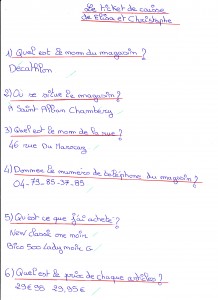 Le ticket de caisse
de Elisa et Christophe
1) Quel est le nom du magasin ?
Décathlon
2) Où se situe le magasin ?
A Saint Alban Chambéry
3) Quel est le nom de la rue ?
46 rue Du
4) Donner le numéro de téléphone du magasin ?
04-79-85-37-85
5) Qu'est ce que j'ai acheté ?
New classic one noir
Bico 500 Lady moir G
6) Quel est le prix de chaque articles ?
29€95 29,95€